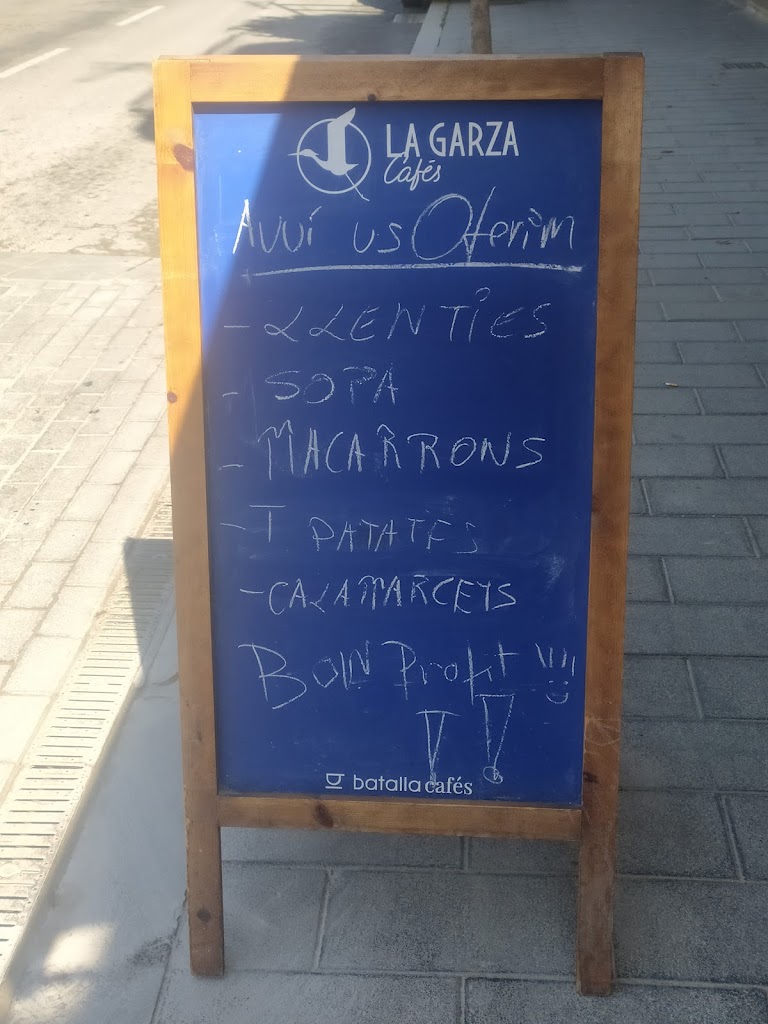 LA GARZA
Cafés
AVUÍ US OFERIM
- LLENTIES
- SOPA
- MACARRONS
- T PATATES
- CALAMARCEYS
BON Profit !!!!
! !
batalla cafés